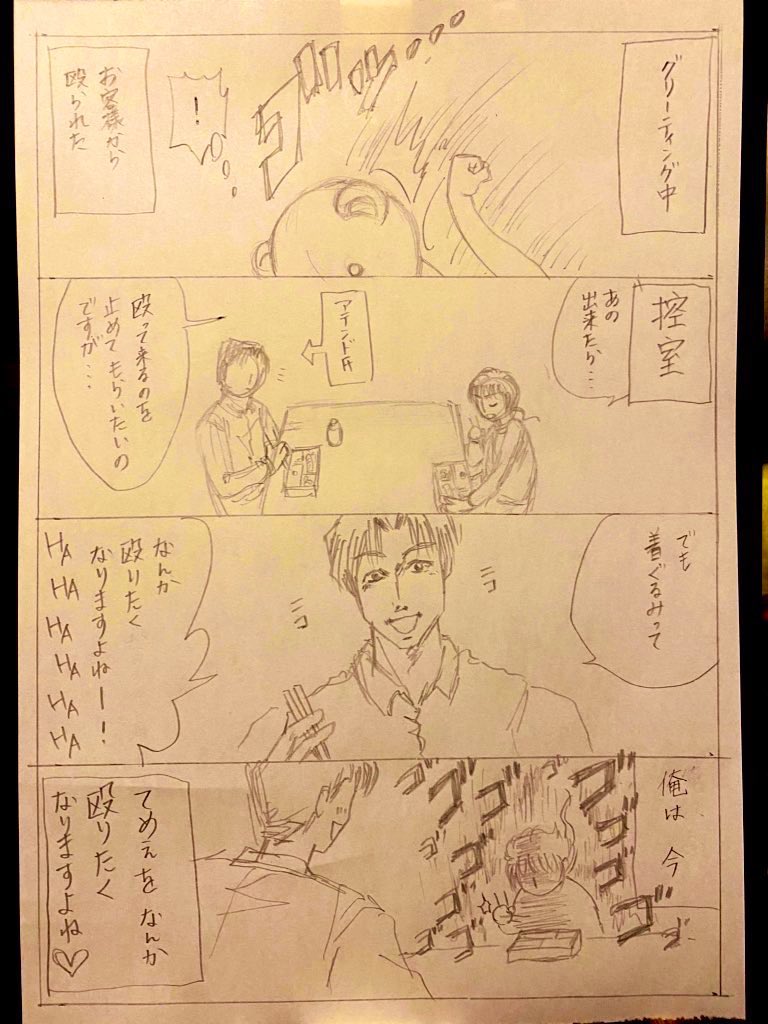 グリーティング中
ガッ...
!...
お客様から
殴られた
控室
あの
出来たら...
アテンド氏
殴って来るのを
止めてもらいたいの
ですが...
でも
着ぐるみって
ニコ
ニコ
なんか
殴りたく
なりますよねー！
HA
HA
HA
HA
HA
HA
俺は 今
ゴゴゴゴゴゴゴゴゴゴゴゴゴゴ
てめぇを なんか
殴りたく
なりますよね♡